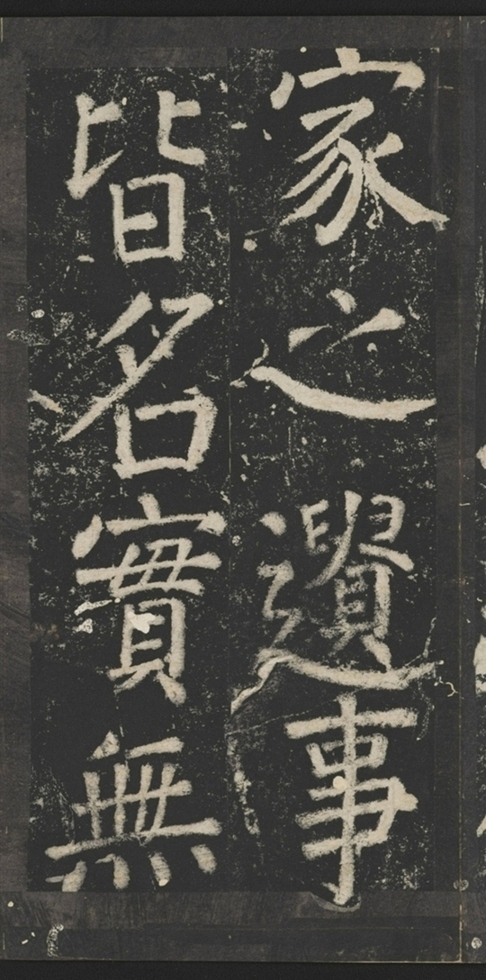 家之遺事
皆名實無